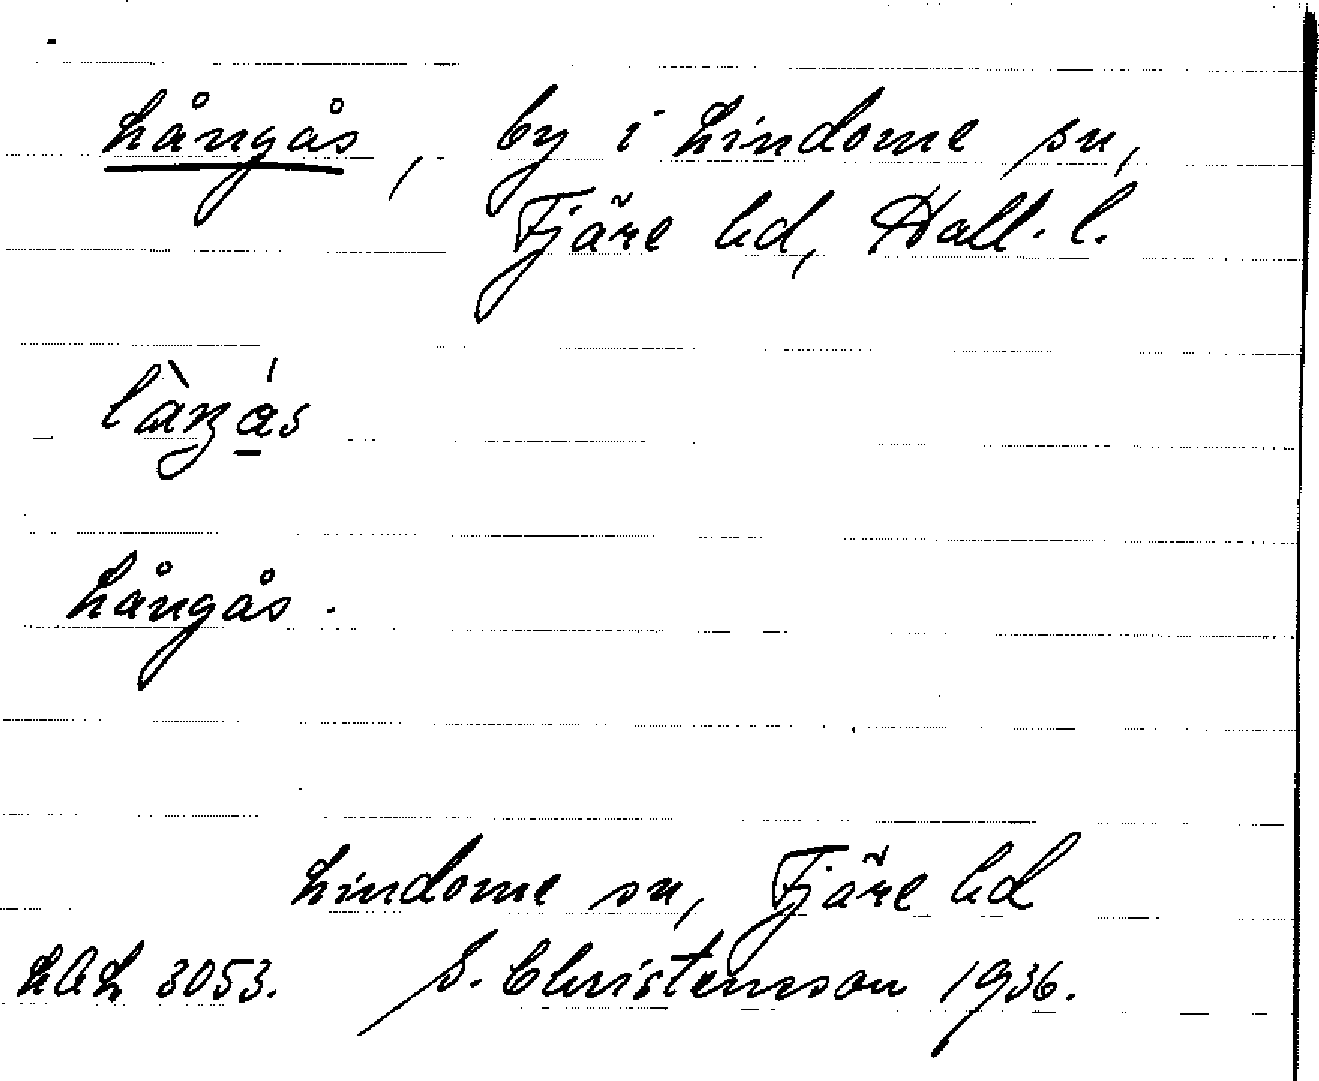 Långås, by i Lindome sn,
Fjäre hd, Hall. l.
Långås.
Lindome sn, Fjäre hd
LAL 3053. S. Christensson 1936.